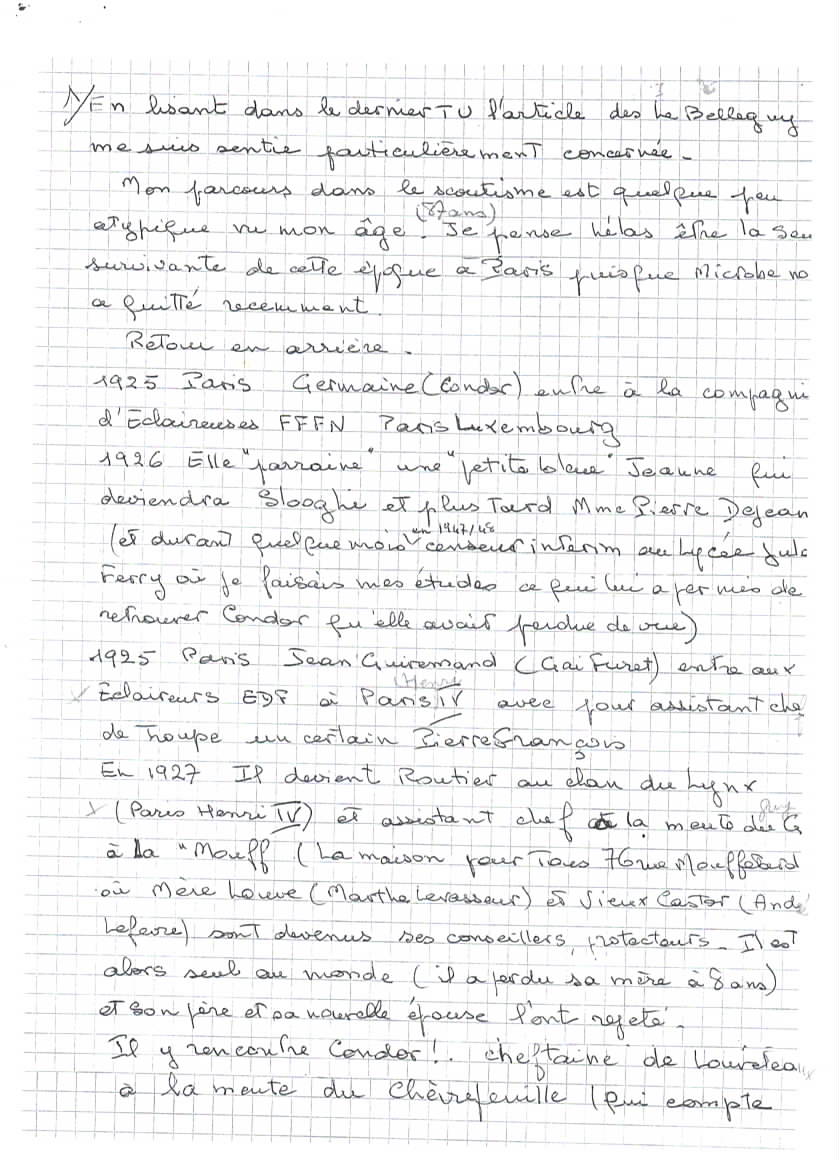 1/ En lisant dans le dernier TU l'article des Le Belleguy
me suis sentie particulièrement concernée.
Mon parcours dans le scoutisme est quelque peu
(87ans)
atypique vu mon âge. Je pense hélas être la seu
survivante de cette époque à Paris puisque Microbe no
a quitté recemment.
Retour en arrière.
1925 Paris Germaine (Condor) entre à la compagni
d'Eclaireuses FFFN Paris Luxembourg
1926 Elle "parraine" une "petite bleue" Jeanne qui
deviendra Slooghi et plus Tard Mme Pierre Dejean
en 1947/48
(et durant quelque mois censeur interim au Lycée Jule
Ferry où je faisais mes études ce qui lui a permis de
retrouver Condor qu'elle avait perdue de vue)
1925 Paris Jean Guiremand (Gai Furet) entre aux
(Henri
Eclaireurs EDF à Paris IV avec pour assistant che
de Troupe un certain Pierre François
En 1927 Il devient Routier au clan du Lynx
guy
(Paris Henri IV) et assistant chef à la meute du G
à la "Mouff (La maison pour Tous 76 rue Mouffetard
où Mère Louve (Marthe Levasseur) et Vieux Castor (André
Lefevre) sont devenus ses conseillers, protecteurs. Il est
alors seul au monde (il a perdu sa mère à 8 ans)
et son père et sa nouvelle épouse l'ont rejeté.
Il y rencontre Condor!. cheftaine de Louveteaux
à la meute du Chèvrefeuille (qui compte